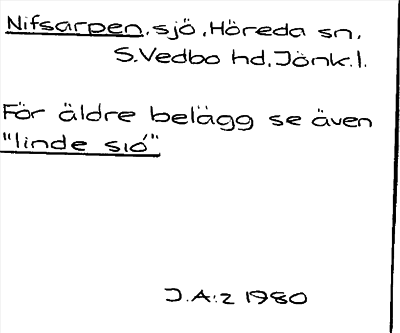 Nifsarpen, sjö, Höreda sn,
S. Vedbo hd, Jönk. l.
För äldre belägg se även
"linde sıó"
J.A:z 1980